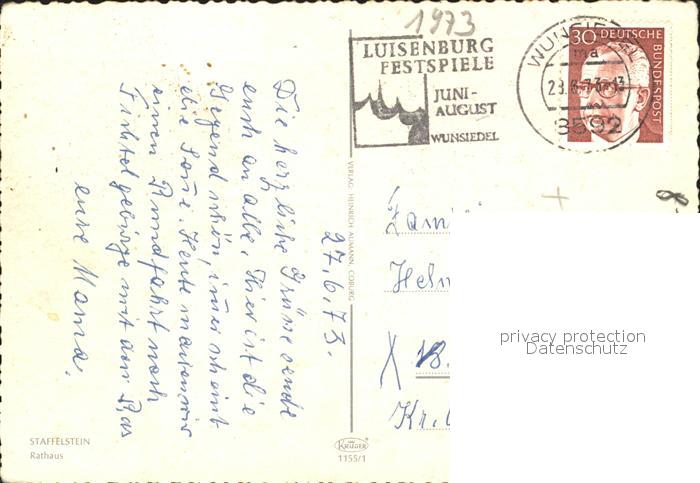 1973
LUISENBURG
FESTSPIELE
JUNI-
AUGUST
WUNSIEDEL
WUNSIEDEL
ma
28.6.73-13
8592
30 DEUTSCHE
BUNDESPOST
27.6.73.
Die herzliche Grüsse sende
euch an alle. Hier ist die
Gegend schön, immer scheint
die Sonne. Heute machen wir
einen Rundfahrt nach
Fichtelgebirge mit dem Bus
eure Mama.
VERLAG: HEINRICH AUMANN, COBURG
Helm
Kr.
privacy protection
Datenschutz
STAFFELSTEIN
Rathaus
KRÜGER
1155/1